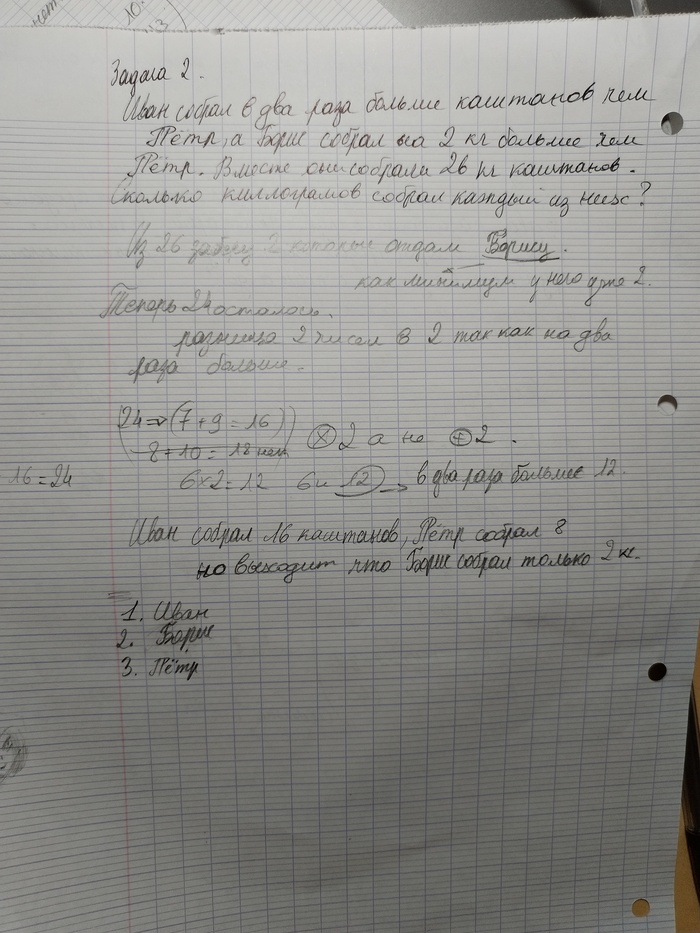 10.
Задача 2.
Иван собрал в два раза больше каштанов чем
Пётр, а Борис собрал на 2 кг больше чем
Пётр. Вместе они собрали 26 кг каштанов.
Сколько киллограмов собрал каждый из них?
Из 26 заберу 2 которые отдам Борису.
как минимум у него уже 2.
Теперь 24 осталось.
разница 2 чисел в 2 так как на два
раза больше.
24 => (7 + 9 = 16)
8 + 10 = 18 нет
× 2 а не + 2.
16 = 24
6 × 2 = 12 6 и 12 → в два раза больше 12.
Иван собрал 16 каштанов, Пётр собрал 8
но выходит что Борис собрал только 2 кг.
1. Иван
2. Борис
3. Пётр